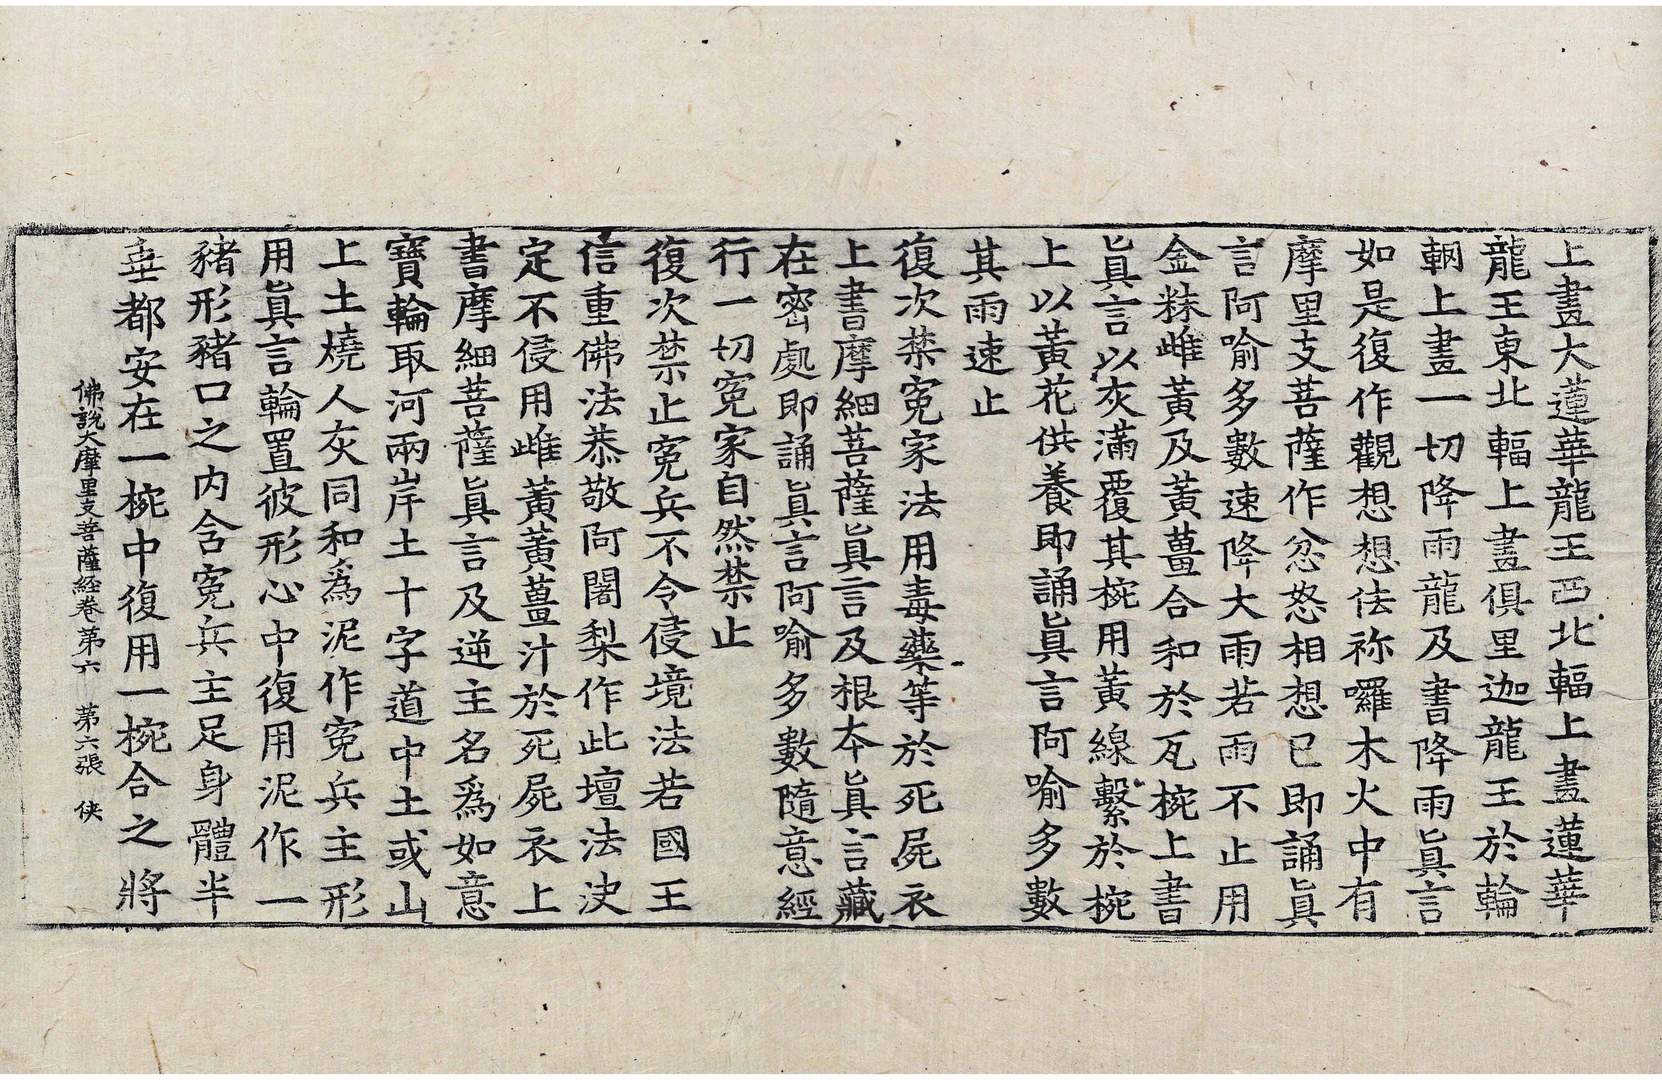 上畫大蓮華龍王西北輻上畫蓮華
龍王東北輻上畫俱里迦龍王於輪
輞上畫一切降雨龍及書降雨眞言
如是復作觀想想佉祢囉木火中有
摩里支菩薩作忿怒相想已即誦眞
言阿喻多數速降大雨若雨不止用
金粖雌黃及黃薑合和於瓦椀上書
眞言以灰滿覆其椀用黃線繫於椀
上以黃花供養即誦眞言阿喻多數
其雨速止
復次禁寃家法用毒藥等於死屍衣
上書摩細菩薩眞言及根本眞言藏
在密處即誦眞言阿喻多數隨意經
行一切寃家自然禁止
復次禁止寃兵不令侵境法若國王
信重佛法恭敬阿闍梨作此壇法決
定不侵用雌黃黃薑汁於死屍衣上
書摩細菩薩眞言及逆主名爲如意
寶輪取河兩岸土十字道中土或山
上土燒人灰同和爲泥作寃兵主形
用眞言輪置彼形心中復用泥作一
豬形豬口之內含寃兵主足身體半
並都安在一椀中復用一椀合之將
佛說大摩里支菩薩經卷第六 第六張 俠